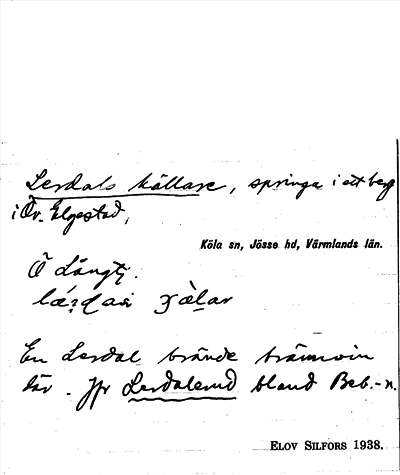 Lerdals källare, springa i ett berg
i Öv. Elgestad,
Köla sn, Jösse hd, Värmlands län.
Ö Långt;
En Lerdal brände brännvin
där. Jfr Lerdalerud bland Beb.-n.
ELOV SILFORS 1938.